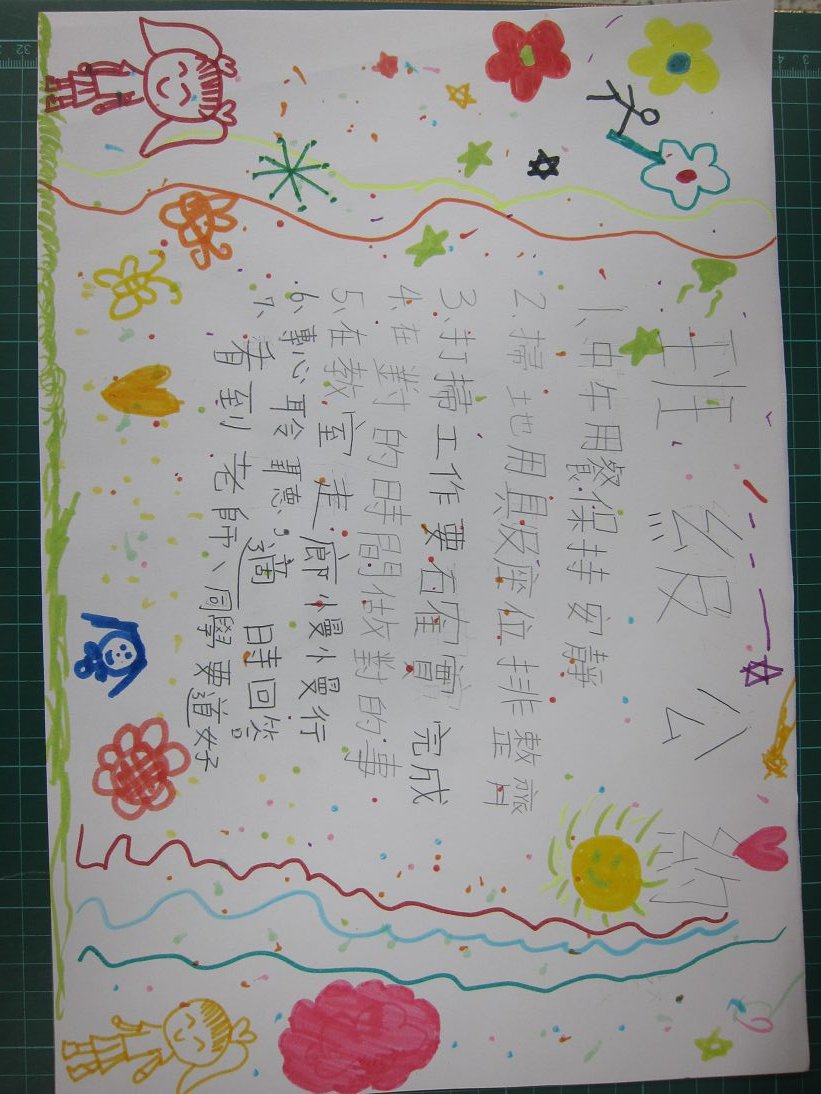 班級公約
1、中午用餐保持安靜
2、掃地用具及座位排整齊
3、打掃工作要在確實完成
4、在對的時間做對的事
5、在教室走廊慢慢行
6、專心聆聽,適時回答
7、看到老師、同學要道好